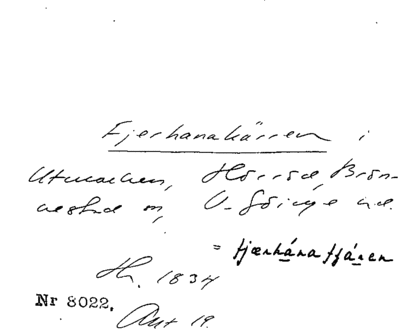 Fjerhanakärren i
Utmarken, Hörröd, Brön-
nestad sn, V. Göinge hd.
= fjærhána fjáren
Hh. 1834
Nr 8022.
Akt 19.